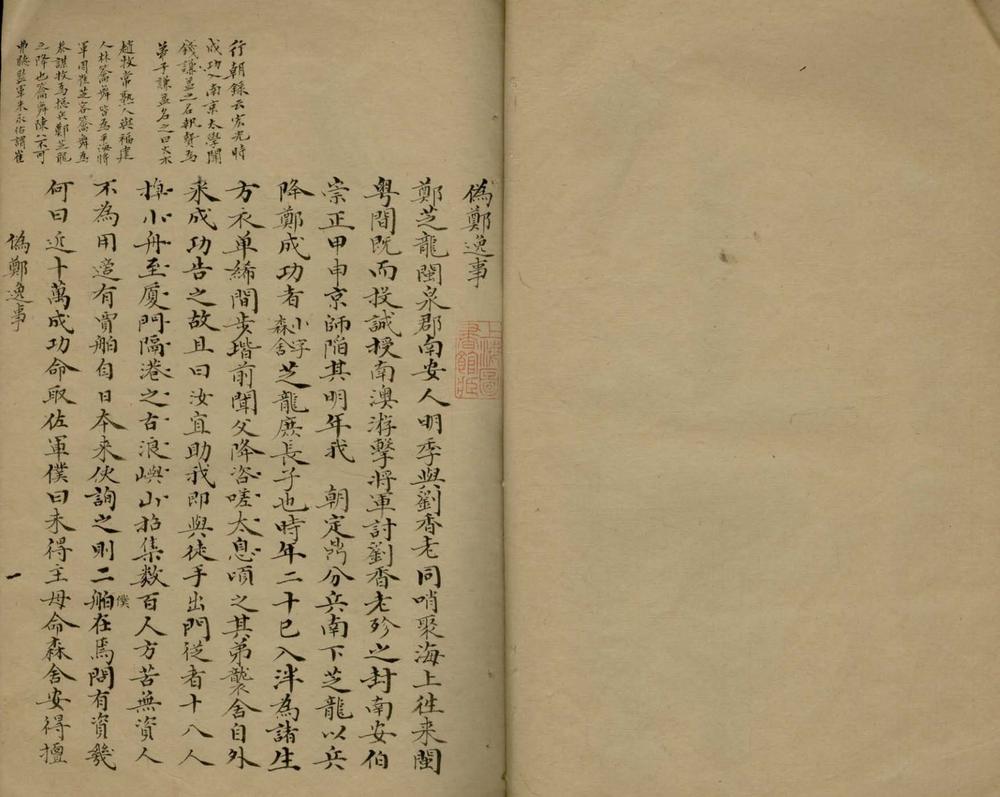 偽鄭逸事
鄭芝龍閩泉郡南安人明季與劉香老同哨聚海上往来閩
粤間既而投誠授南澳游擊將軍討劉香老殄之封南安伯
崇正甲申京師陷其明年我 朝定鼎分兵南下芝龍以兵
降鄭成功者小字森舍芝龍庶長子也時年二十已入泮為諸生
方衣单絺間步堦前聞父降咨嗟太息頃之其弟襲舍自外
来成功告之故且曰汝宜助我即與徒手出門從者十八人
掉小舟至厦門隔港之古浪嶼山招集数百人方苦無資人
不為用適有賈舶自日本来使詢之則二僕在焉問有資幾
舶
何曰近十萬成功命取佐軍僕曰未得主母命森舍安得擅
行朝錄云宏光時
成功入南京太學聞
錢謙益之名執贄為
弟子謙益名之曰大木
趙牧常熟人與福建
人林籥舞皆為平海將
軍周崔芝客籥舞為
叅謀牧為
鄭芝龍
之降也籥舞陳八不可
監軍朱永佑謂崔
偽鄭逸事
一
上海圖
書館藏